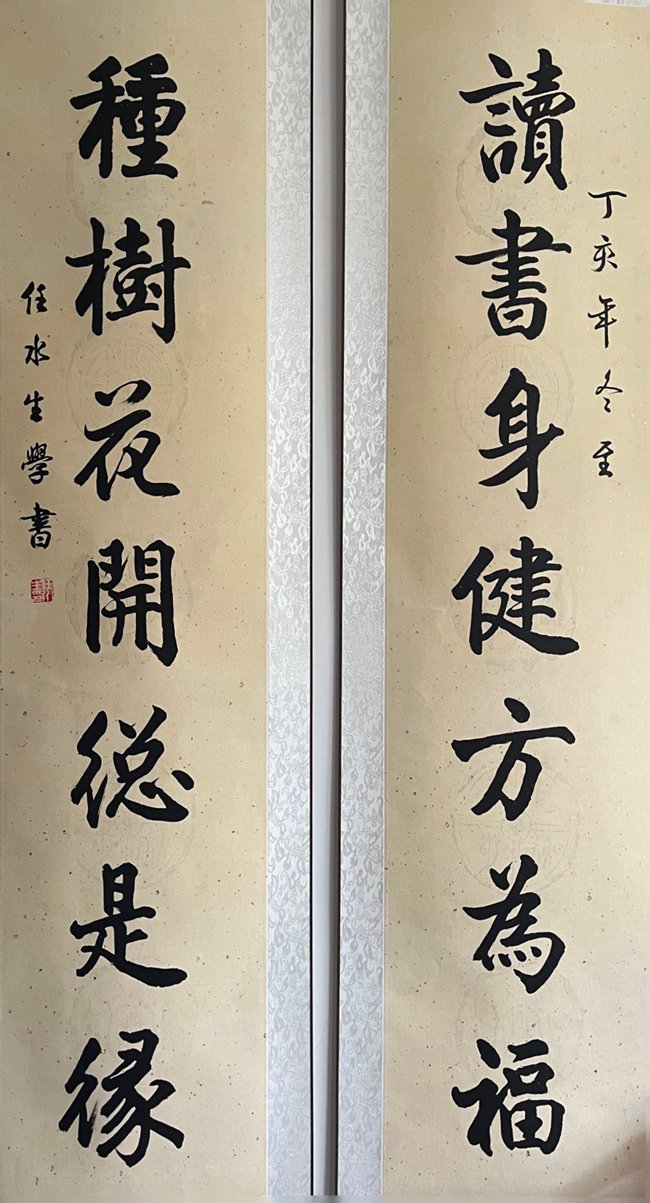 讀書身健方為福
丁亥年冬至
種樹花開總是緣
任水生學書